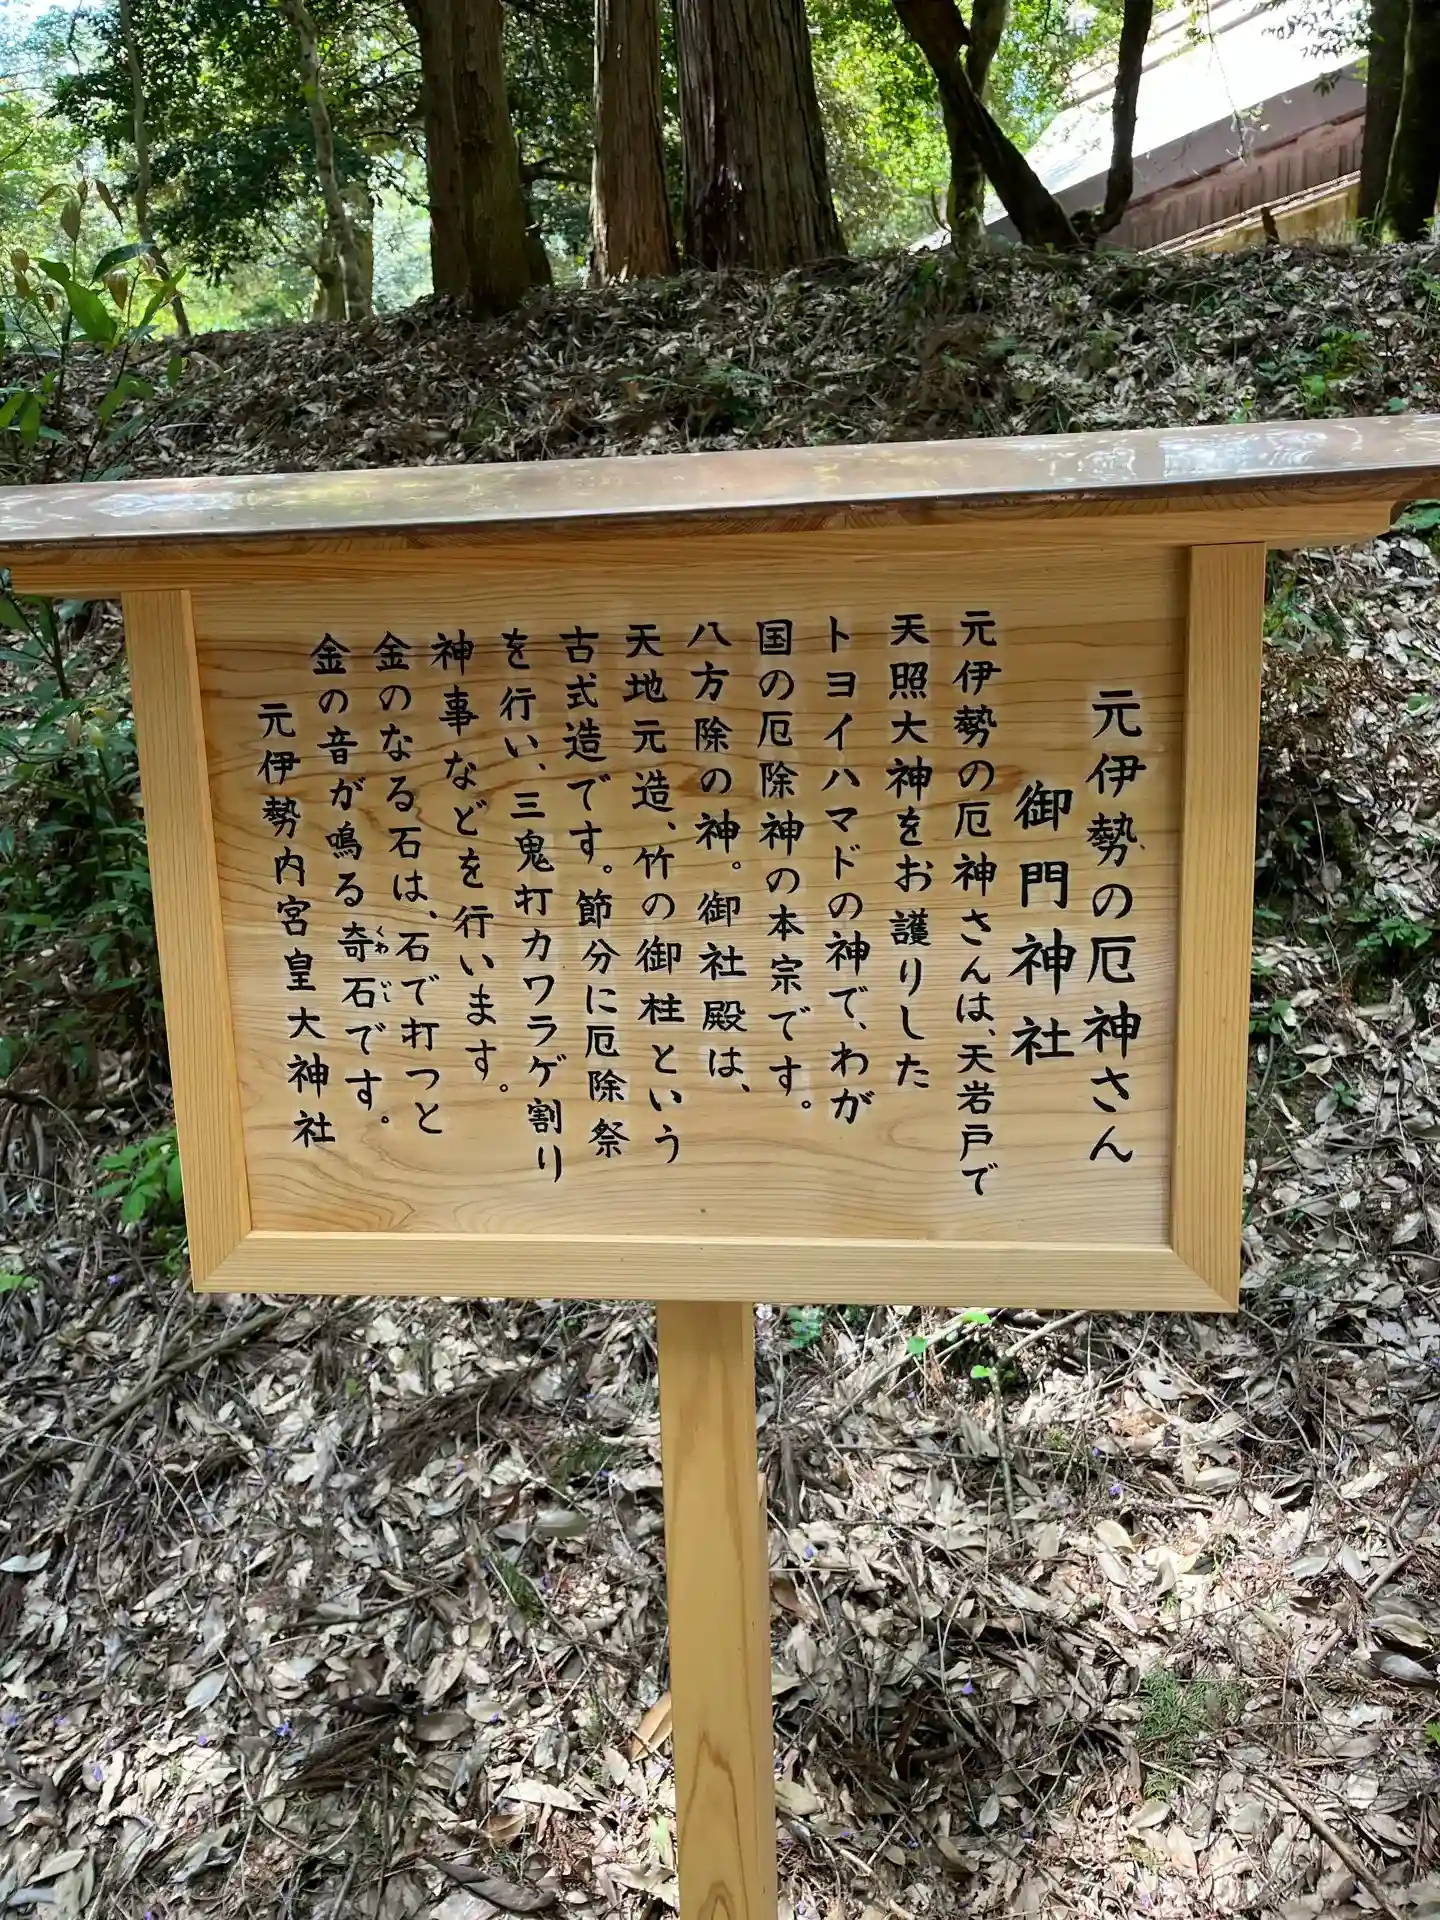 元伊勢の厄神さん
御門神社
元伊勢の厄神さんは、天岩戸で
天照大神をお護りした
トヨイハマドの神で、わが
国の厄除神の本宗です。
八方除の神。御社殿は、
天地元造、竹の御柱という
古式造です。節分に厄除祭
を行い、三鬼打カワラゲ割り
神事などを行います。
金のなる石は、石で打つと
金の音が鳴る奇石です。
くわ じ
元伊勢内宮皇大神社